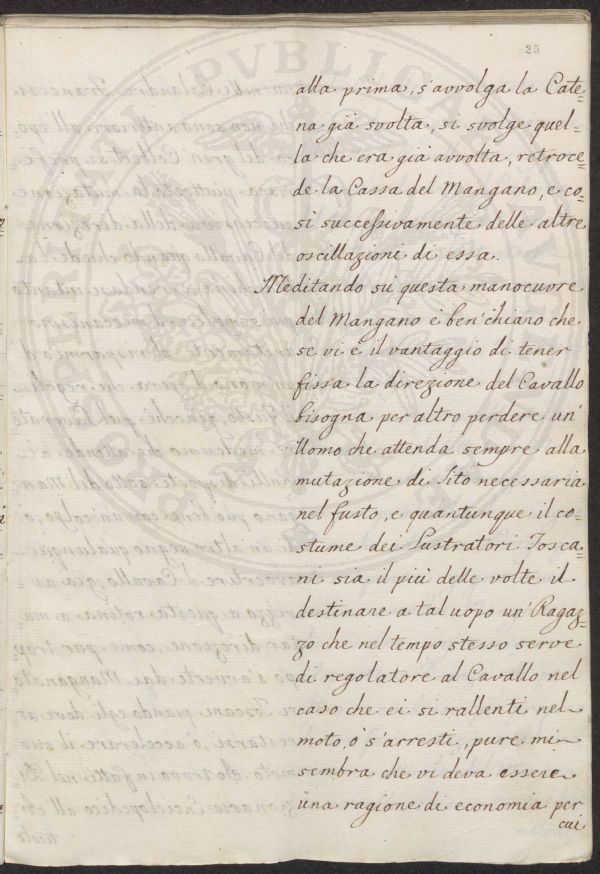 25
alla prima, s'avvolga la Cate=
na già svolta, si svolge quel=
la che era già avvolta, retroce=
de la Cassa del Mangano, e co=
sì successivamente delle altre
oscillazioni di essa.
Meditando sù questa manoeuvre
del Mangano è ben' chiaro che
se vi è il vantaggio di tener
fissa la direzione del Cavallo
bisogna per altro perdere un'
Uomo che attenda sempre alla
mutazione di sito necessaria
nel fusto, e quantunque il co=
stume dei Lustratori Tosca=
ni sia il più delle volte il
destinare a tal uopo un' Ragaz=
zo che nel tempo stesso serve
di regolatore al Cavallo nel
caso che ei si rallenti nel
moto, o s'arresti, pure mi
sembra che vi deva essere
una ragione di economia per
cui